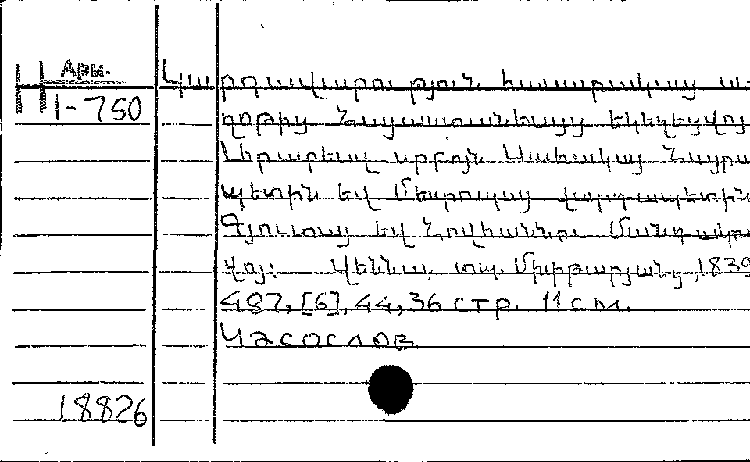 Արև.
H 1-750
Կարգաւորութիւն հասարակաց ա-
ղօթից Հայաստանեայց եկեղեցւոյ
արարեալ սրբոյն Սահակայ Հայրա
պետին եւ Մեսրոպայ վարդապետին
Գյուտայ եւ Հովհաննու Մանդակու
վոյ: Վեննա, տպ. Մխիթարյանց, 1839
487, [6], 44, 36 стр. 11 см.
Часослов
18826